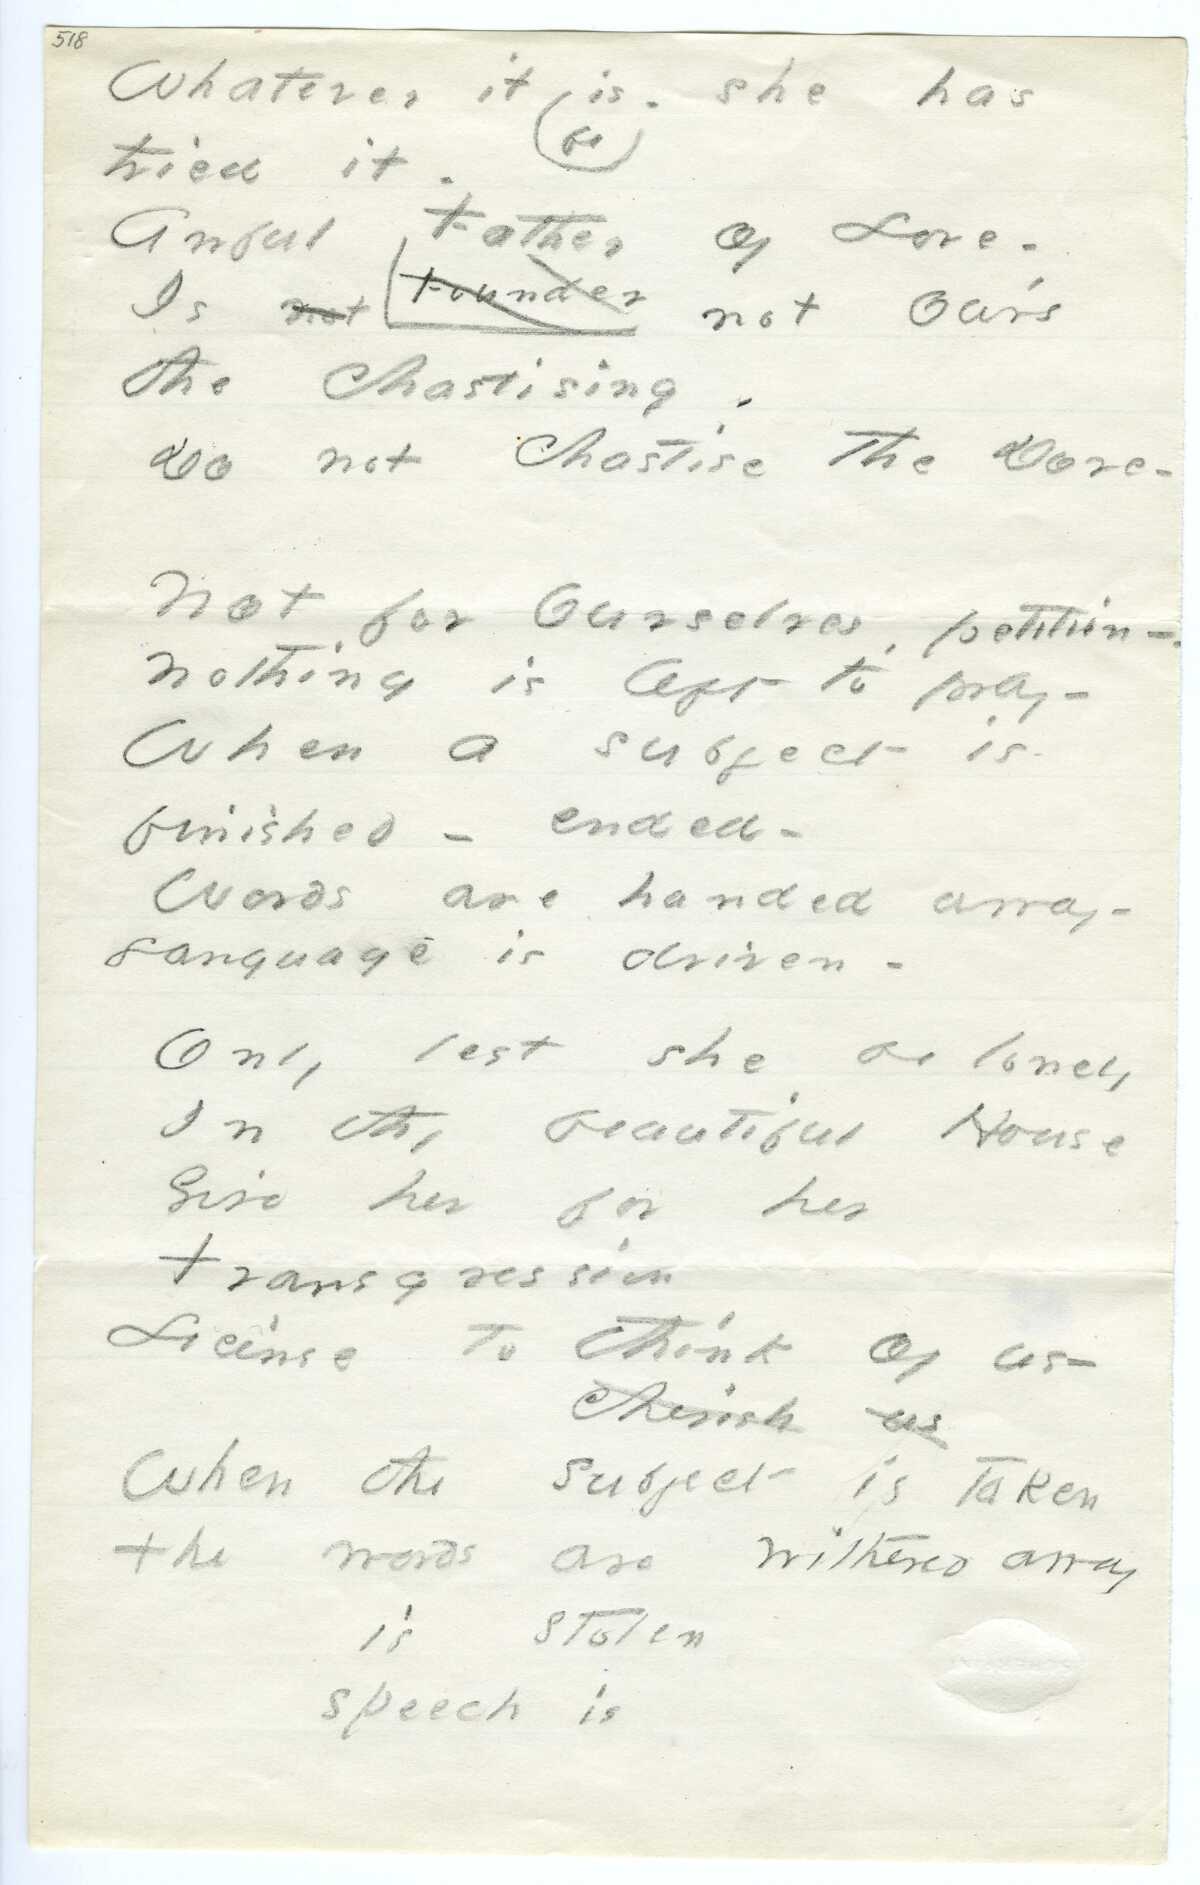 518
Whatever it is. she has
(be)
tried it.
Awful Father of Love-
Is not Founder not Our's
the Chastising.
Do not Chastise the Dove-
Not for Ourselves, petition-
nothing is left to pray-
When a subject is
finished - ended-
Words are handed away-
Language is driven-
Only lest she be lonely
In thy beautiful House
Give her for her
Transgression
License to think of us-
Cherish us
When the subject is Taken
the words are withered away
is stolen
speech is